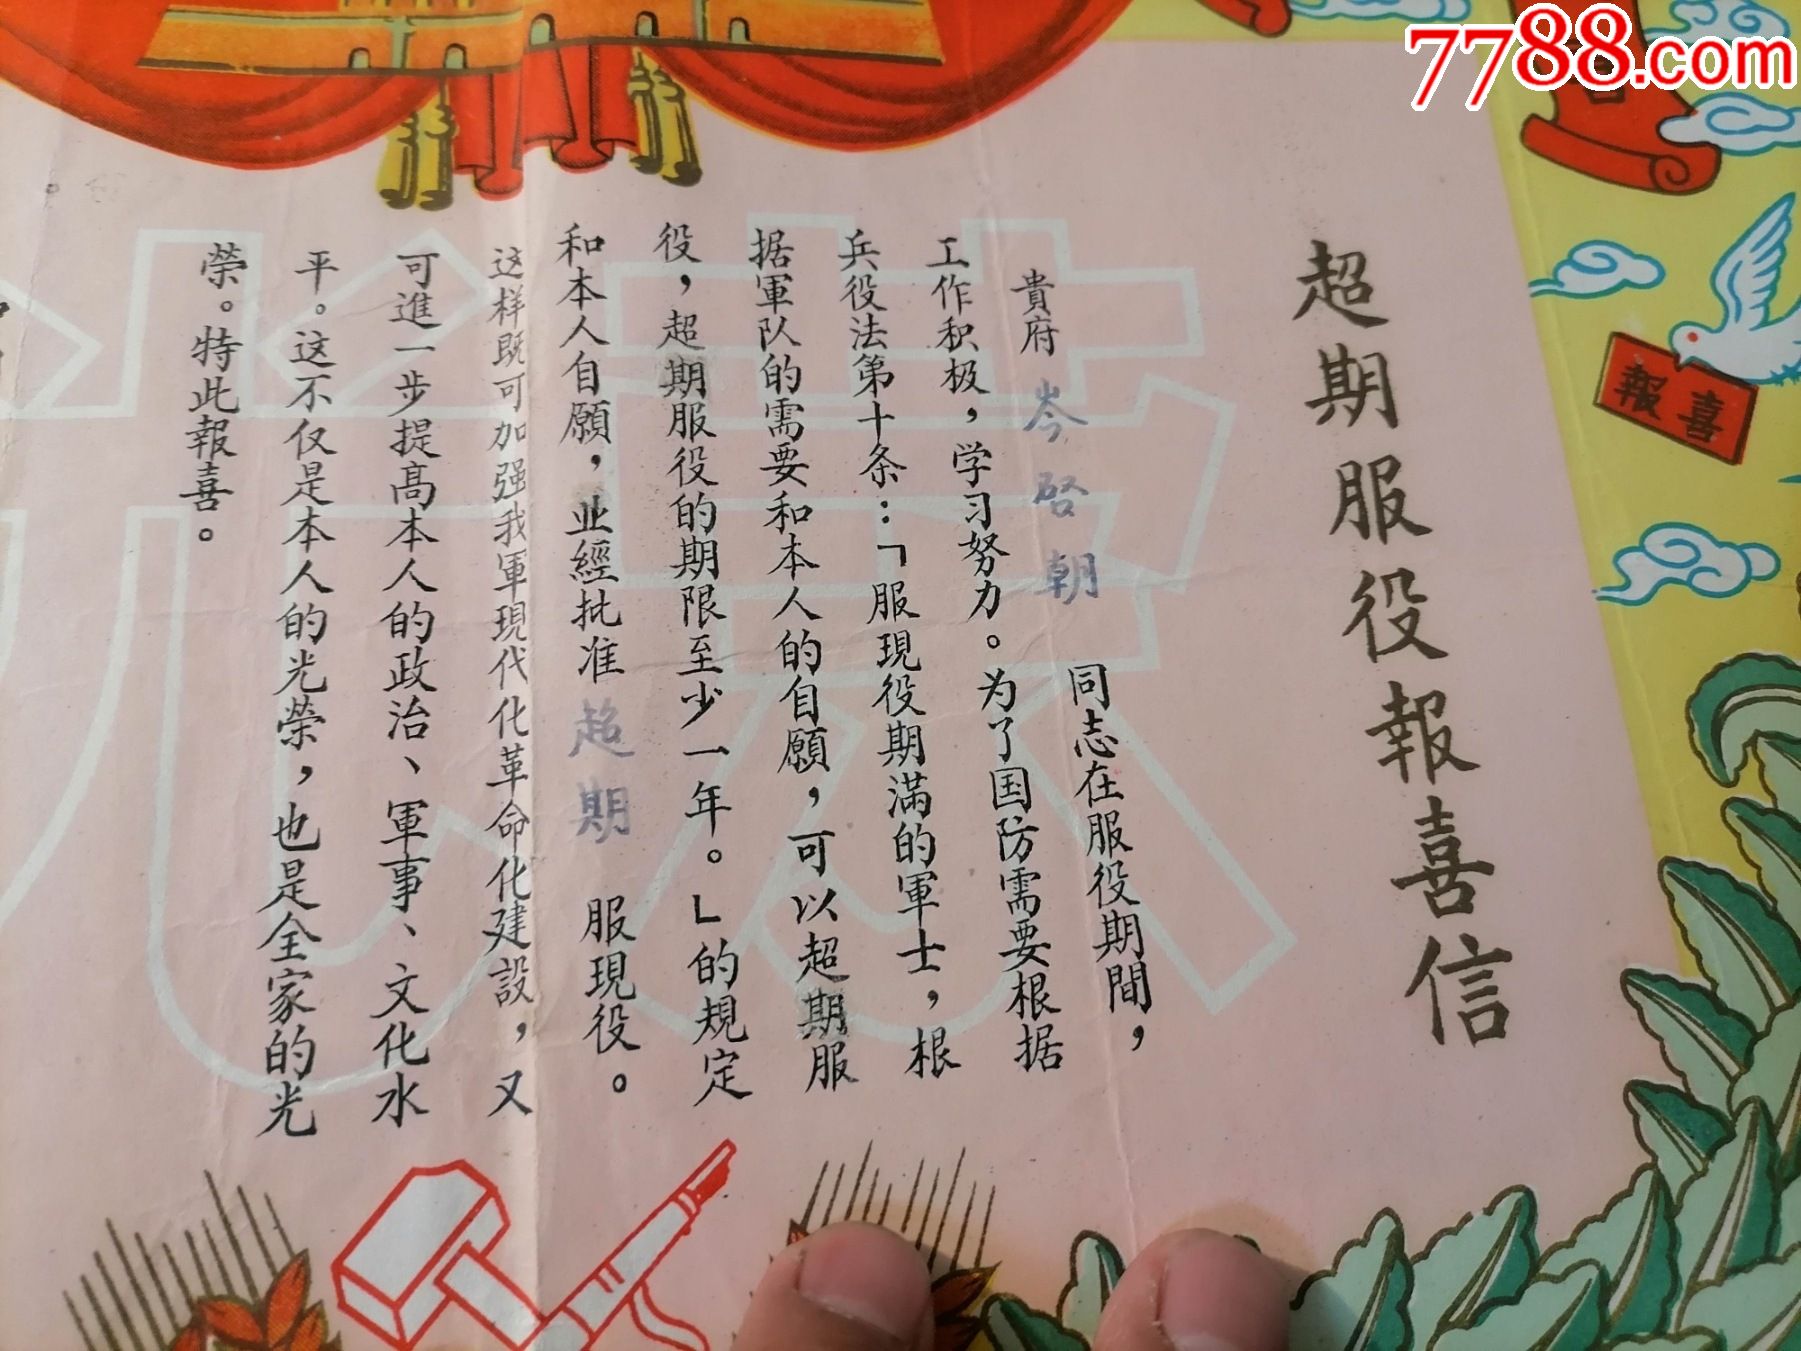 7788.com
超期服役報喜信
貴府岑啓朝同志在服役期間，
工作积极，学习努力。为了国防需要根据
兵役法第十条：「服現役期滿的軍士，根
据軍队的需要和本人的自願，可以超期服
役，超期服役的期限至少一年。」的規定
和本人自願，业經批准超期服現役。
这样既可加强我軍現代化革命化建設，又
可進一步提高本人的政治、軍事、文化水
平。这不仅是本人的光榮，也是全家的光
榮。特此報喜。
喜報